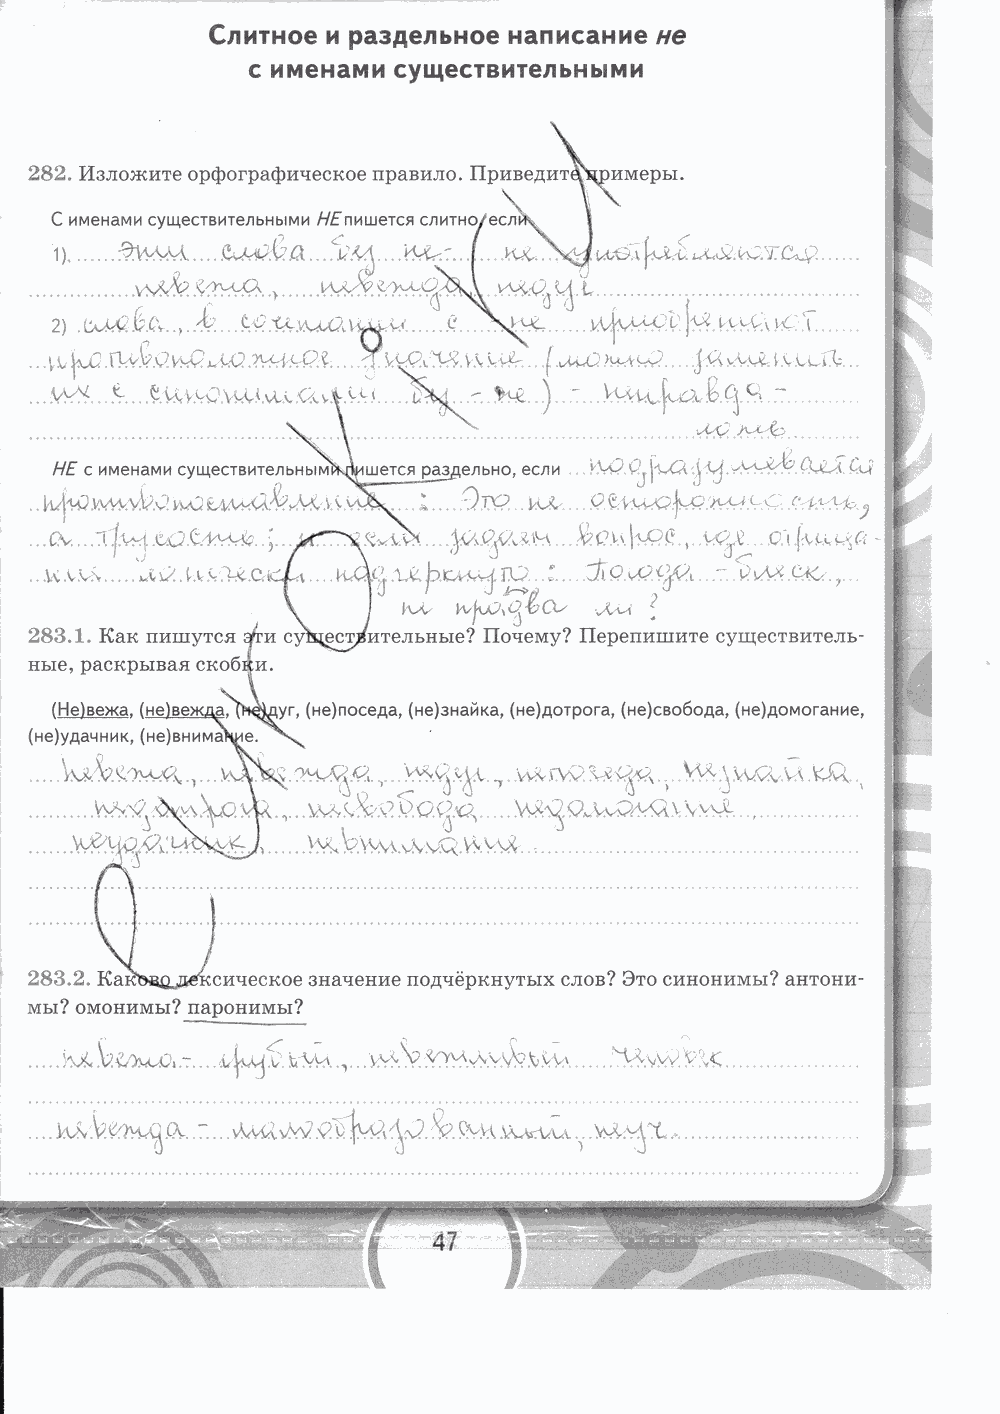 Слитное и раздельное написание не
с именами существительными
282. Изложите орфографическое правило. Приведите примеры.
С именами существительными НЕ пишется слитно, если
1). эти слова без не- не употребляются
невежа, невежда, недуг
2) слова, в сочетании с не приобретают
противоположное значение (можно заменить
их с синонимами без - не) - неправда -
ложь
НЕ с именами существительными пишется раздельно, если подразумевается
противопоставление : Это не осторожность,
а трусость; и если задаем вопрос, где отрица-
ние логически подчеркнуто : Погода - блеск,
не правда ли?
283.1. Как пишутся эти существительные? Почему? Перепишите существитель-
ные, раскрывая скобки.
(Не)вежа, (не)вежда, (не)дуг, (не)поседа, (не)знайка, (не)дотрога, (не)свобода, (не)домогание,
(не)удачник, (не)внимание.
Невежа, невежда, недуг, непоседа, незнайка,
недотрога, несвобода недомогание,
неудачник, невнимание.
283.2. Каково лексическое значение подчёркнутых слов? Это синонимы? антони-
мы? омонимы? паронимы?
невежа - грубый, невежливый человек
невежда - малообразованный, неуч.
47
euroki.ru